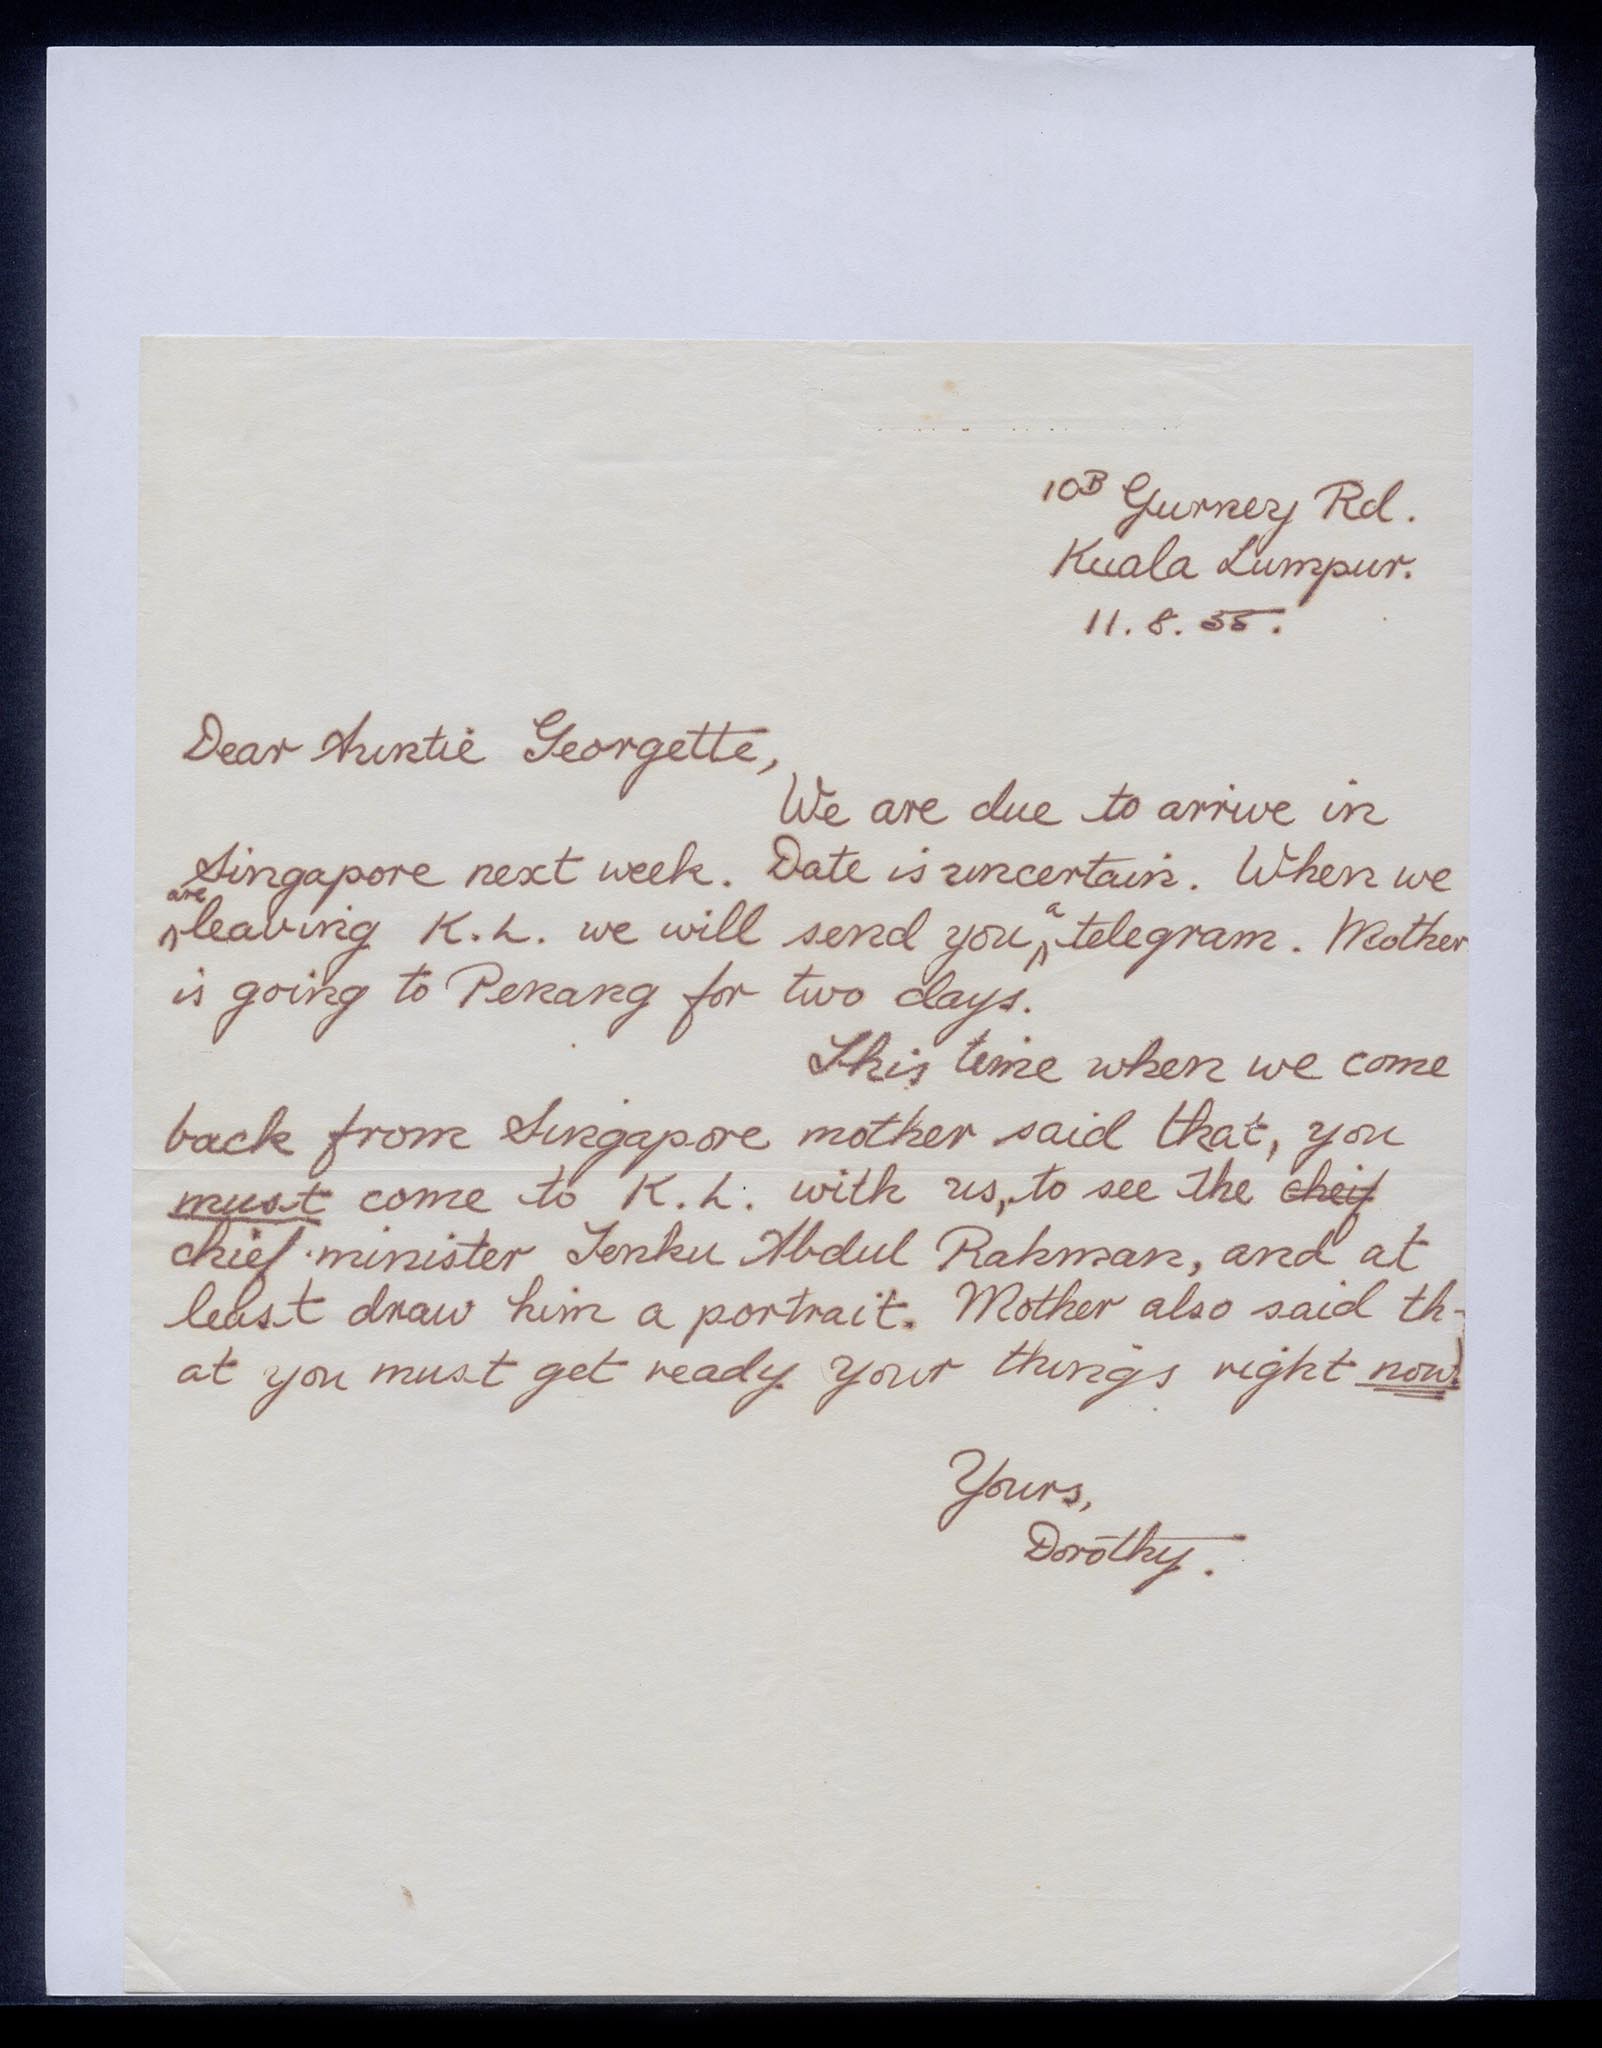 10B Gurney Rd.
Kuala Lumpur.
11. 8. 55.
Dear Auntie Georgette,
We are due to arrive in
Singapore next week. Date is uncertain. When we
are leaving K.L. we will send you a telegram. Mother
is going to Penang for two days.
This time when we come
back from Singapore mother said that, you
must come to K.L. with us, to see the cheif
chief minister Tenku Abdul Rahman, and at
least draw him a portrait. Mother also said th-
at you must get ready your things right now.
Yours,
Dorothy.